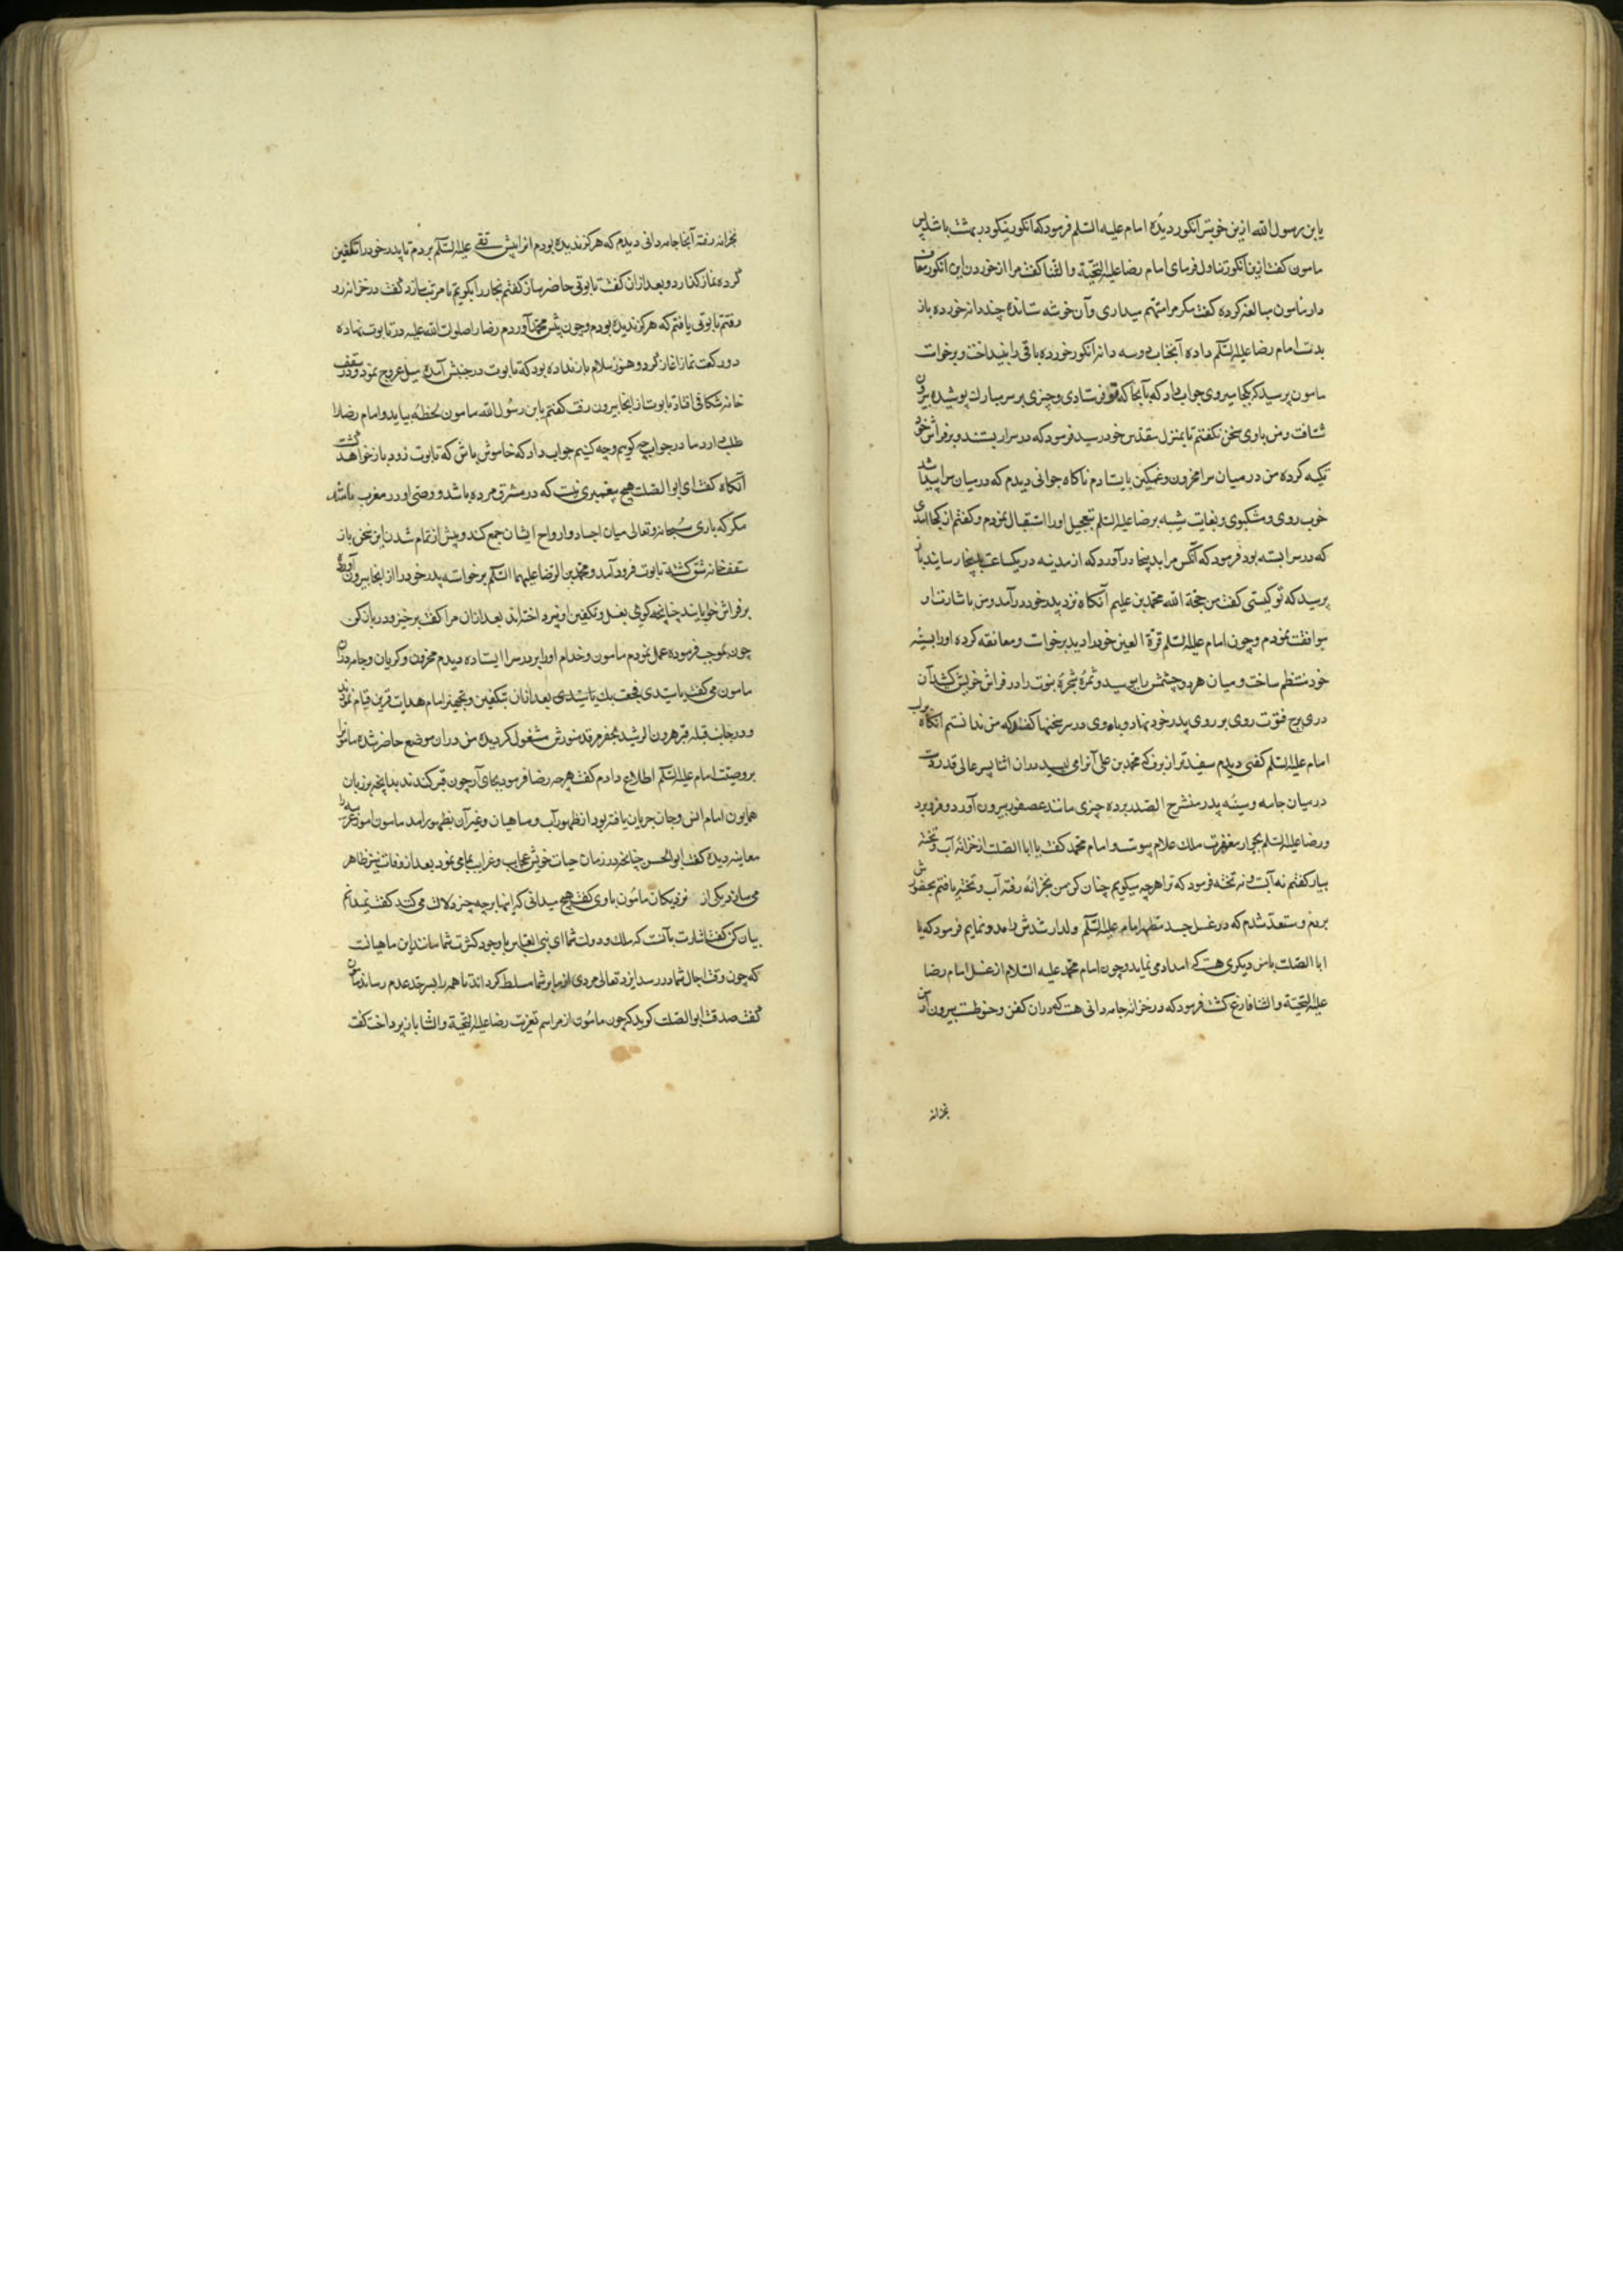 یابن رسول الله ازین خوبتر انکور دیدهٔ امام علیه السلم فرمود که انکور نیکو در بهشت باشد پس
مامون کفت ازین انکور تناول فرمای امام رضا علیه التحیة والثنا کفت مرا از خوردن این انکور معاف
دار مامون مبالغه کرده کفت مکر مرا متهم میداری و آن خوشه ستانده چند دانه خورده باز
بدست امام رضا علیه السلم داده آنجناب دو سه دانه انکور خورده باقی را بینداخت و برخواست
مامون پرسید که بکجا میروی جواب داد که بآنجا که تو فرستادی و چیزی بر سر مبارک پوشیده بیرون
شتافت و من با وی سخن نکفتم تا بمنزل مقدس خود رسید فرمود که در سرا ببستند و بر فراش خود
تکیه کرده من در میان سرا محزون و غمکین بایستادم ناکاه جوانی دیدم که در میان سرا پیدا شد
خوب روی و مشکبوی و بغایت شبیه برضا علیه السلم بتعجیل او را استقبال نمودم و کفتم از کجا امدی
که در سرا بسته بود فرمود که آنکس مرا بدینجا در آورد که از مدینه در یکساعت بدینجا رسانید باز
پرسید که تو کیستی کفت من حجة الله محمد بن علیم آنکاه نزد پدر خود در آمد و من باشارت او
موافقت نمودم و چون امام علیه السلم قرة العین خود را دید برخواست و معانقه کرده او را بسینه
خود منتظم ساخت و میان هر دو چشمش را ببوسید و ثمرهٔ شجرهٔ نبوت را در فراش خویش کشید آن
دری برج فتوت روی بر روی پدر خود نهاد و با وی در سر سخنها کفت که من ندانستم آنکاه بر لب
امام علیه السلم کفی دیدم سفیدتر از برف که محمد بن علی آنرا می لیسید در ان اثنا پسر عالی قدر دست
در میان جامه و سینهٔ پدر منشرح الصدر برده چیزی مانند عصفور بیرون آورد و فرو برد
و رضا علیه السلم بجوار مغفرت ملک علام پیوست و امام محمد کفت یا ابا الصلت از خزانه آب و تخته
بیار کفتم نه آبست و نه تخته فرمود که ترا هر چه میکویم چنان کن من بخزانه رفته آب و تخته یافتم بحضورش
بردم و مستعد شدم که در غسل جسد مطهر امام علیه السلم ولد ارشدش را مدد نمایم فرمود که یا
ابا الصلت با من دیکری هست که امداد می نماید و چون امام محمد علیه السلام از غسل امام رضا
علیه التحیة والثنا فارغ کشت فرمود که در خزانه جامه دانی هست که در ان کفن و حنوطست بیرون آر من
بخزانه
بخزانه رفته آنجا جامه دانی دیدم که هرکز ندیده بودم انرا پیش تقی علیه السلم بردم تا پدر خود را تکفین
کرده نماز کذارد و بعد از ان کفت تابوتی حاضر ساز کفتم نجار را بکویم تا مرتب سازد کفت در خزانه رو
رفتم تابوتی یافتم که هرکز ندیده بودم و چون پیش محمد آوردم رضا را صلوات الله علیه در تابوت نهاده
دو رکعت نماز اغاز کرد و هنوز سلام باز نداده بود که تابوت در جنبش آمده میل عروج نمود و در سقف
خانه شکافی افتاد تابوت از انجا بیرون رفت کفتم یابن رسول الله مامون لحظهٔ بیاید و امام رضا را
طلب دارد ما در جواب چه کوییم و چه کنیم جواب داد که خاموش باش که تابوت زود باز خواهد کشت
آنکاه کفت ای ابو الصلت هیچ پیغمبری نیست که در مشرق مرده باشد و وصی او در مغرب باشد
مکر که باری سبحانه و تعالی میان اجساد و ارواح ایشان جمع کند و پیش از تمام شدن این سخن باز
سقف خانه شق کشته تابوت فرود آمد و محمد بن الرضا علیهما السلم برخواسته پدر خود را از انجا بیرون آورده
بر فراش خوابانید چنانچه کوئی بغسل و تکفین او نپرداخته اند بعد از ان مرا کفت برخیز و در باز کن
چون بموجب فرموده عمل نمودم مامون و خدام او را بر در سرا ایستاده دیدم محزون و کریان و جامه دران
مامون می کفت یا سیدی فجعت بک یا سیدی بعد از ان بتکفین و تجهیز امام هدایت قرین قیام نمودند
و در جانب قبله قبر هرون الرشید بحفر مرقد منورش مشغول کردیده من در ان موضع حاضر شده مامونرا
بر وصیت امام علیه السلم اطلاع دادم کفت هر چه رضا فرمود بجای آر چون قبر کندند بدانچه بر زبان
همایون امام انس و جان جریان یافته بود از ظهور آب و ماهیان و غیر آن بظهور امد مامون امور غریبه را
معاینه دیده کفت ابو الحسن چنانچه در زمان حیات خویش عجایب و غرایب بما می نمود بعد از وفات نیز ظاهر
می سازد یکی از نزدیکان مامون با وی کفت هیچ میدانی که اینها بر چه چیز دلالت می کند کفت نمیدانم
بیان کن کفت اشارت بآنست که ملک و دولت شما ای بنی العباس با وجود کثرت شما مانند این ماهیانست
که چون وقت اجال شما در رسد ایزد تعالی مردی از ما بر شما مسلط کرداند تا همه را بسرحد عدم رساند مامون
کفت صدقت ابو الصلت کوید که چون مامون از مراسم تعزیت رضا علیه التحیة والثنا باز پرداخت کفت